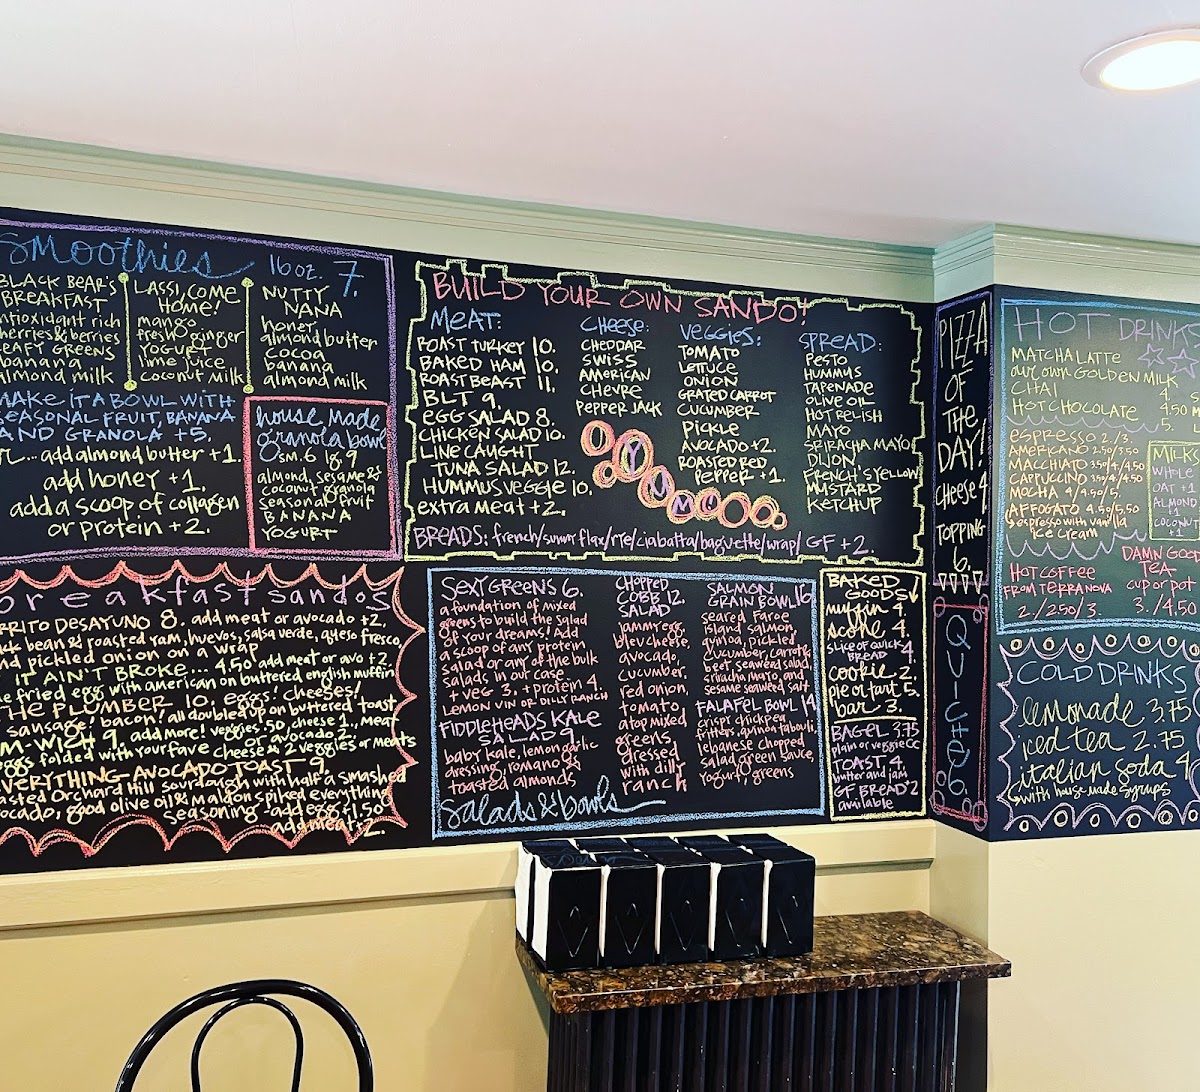 smoothies 16 oz. 7.
BLACK BEAR'S
BREAKFAST
antioxidant rich
cherries & berries
LEAFY GREENS
banana
almond milk
LASSI, COME
HOME!
mango
fresh ginger
YOGURT
lime juice
coconut milk
NUTTY
NANA
honey
almond butter
cocoa
banana
almond milk
MAKE IT A BOWL WITH
SEASONAL FRUIT, BANANA
AND GRANOLA +5.
add almond butter +1.
add honey +1.
add a scoop of collagen
or protein +2.
house made
granola bowl
sm. 6 lg. 9
almond, sesame &
coconut granola
seasonal fruit
BANANA
YOGURT
breakfast sandos
BURRITO DESAYUNO 8. add meat or avocado +2.
black bean & roasted yam, huevos, salsa verde, queso fresco
and pickled onion on a wrap
IF IT AIN'T BROKE... 4.50 add meat or avo +2.
one fried egg with american on buttered english muffin
THE PLUMBER 10. eggs! cheeses!
sausage! bacon! all doubled up on buttered toast
M-WICH 9. add more! veggies .50 cheese 1., meat
or avocado 2.
eggs folded with your fave cheese & 2 veggies or meats
EVERYTHING AVOCADO TOAST 9.
toasted Orchard Hill sourdough with half a smashed
avocado, good olive oil & Maldon spiked everything
seasoning - add egg 1.50
add meat 2.
BUILD YOUR OWN SANDO!
MEAT:
ROAST TURKEY 10.
BAKED HAM 10.
ROAST BEAST 11.
BLT 9.
EGG SALAD 8.
CHICKEN SALAD 10.
LINE CAUGHT
TUNA SALAD 12.
HUMMUS VEGGIE 10.
extra meat +2.
CHEESE:
CHEDDAR
SWISS
AMERICAN
CHEVRE
PEPPER JACK
YUM
VEGGIES:
TOMATO
LETTUCE
ONION
GRATED CARROT
CUCUMBER
PICKLE
AVOCADO +2.
ROASTED RED
PEPPER +1.
SPREAD:
PESTO
HUMMUS
TAPENADE
OLIVE OIL
HOT RELISH
MAYO
SRIRACHA MAYO
DIJON
FRENCH'S YELLOW
MUSTARD
KETCHUP
BREADS: french/sunny flax/rye/ciabatta/baguette/wrap/GF +2.
SEXY GREENS 6.
a foundation of mixed
greens to build the salad
of your dreams! Add
a scoop of any protein
salad or any of the bulk
salads in our case.
+ VEG 3. + protein 4.
LEMON VIN OR DILLY RANCH
FIDDLEHEADS KALE
SALAD 9
baby kale, lemon garlic
dressing, romano &
toasted almonds
CHOPPED
COBB 12.
SALAD
jammy egg,
bleu cheese,
avocado,
cucumber,
red onion,
tomato
atop mixed
greens
dressed
with dilly
ranch
SALMON
GRAIN BOWL 16
seared Faroe
island salmon,
quinoa, pickled
cucumber, carrot &
beet, seaweed salad,
sriracha mayo, and
sesame seaweed salt
FALAFEL BOWL 14
crispy chickpea
fritters, quinoa tabouli,
lebanese chopped
salad, green sauce,
yogurt, greens
salads & bowls
BAKED
GOODS
muffin 4.
scone 4.
SLICE OF QUICK
BREAD 4.
cookie 2.
pie or tart 5.
bar 3.
BAGEL 3.75
plain or veggie CC
TOAST 4.
butter and jam
GF BREAD 2
available
PIZZA
OF
THE
DAY!
CHEESE 4
TOPPING
6.
QUICHE 6.
HOT DRINKS
MATCHA LATTE
our own GOLDEN MILK
CHAI 4.
HOT CHOCOLATE 4.50
5.
ESPRESSO 2./3.
AMERICANO 2.50/3.50
MACCHIATO 3.50/4/4.50
CAPPUCCINO 3.50/4/4.50
MOCHA 4/4.50/5.
AFFOGATO 4.50/5.50
espresso with vanilla
ice cream
MILKS
WHOLE
OAT +1
ALMOND
+1
COCONUT
+1
HOT COFFEE
FROM TERRANOVA
2./2.50/3.
DAMN GOOD
TEA
CUP or POT
3./4.50
COLD DRINKS
lemonade 3.75
iced tea 2.75
italian soda 4
with house made syrups